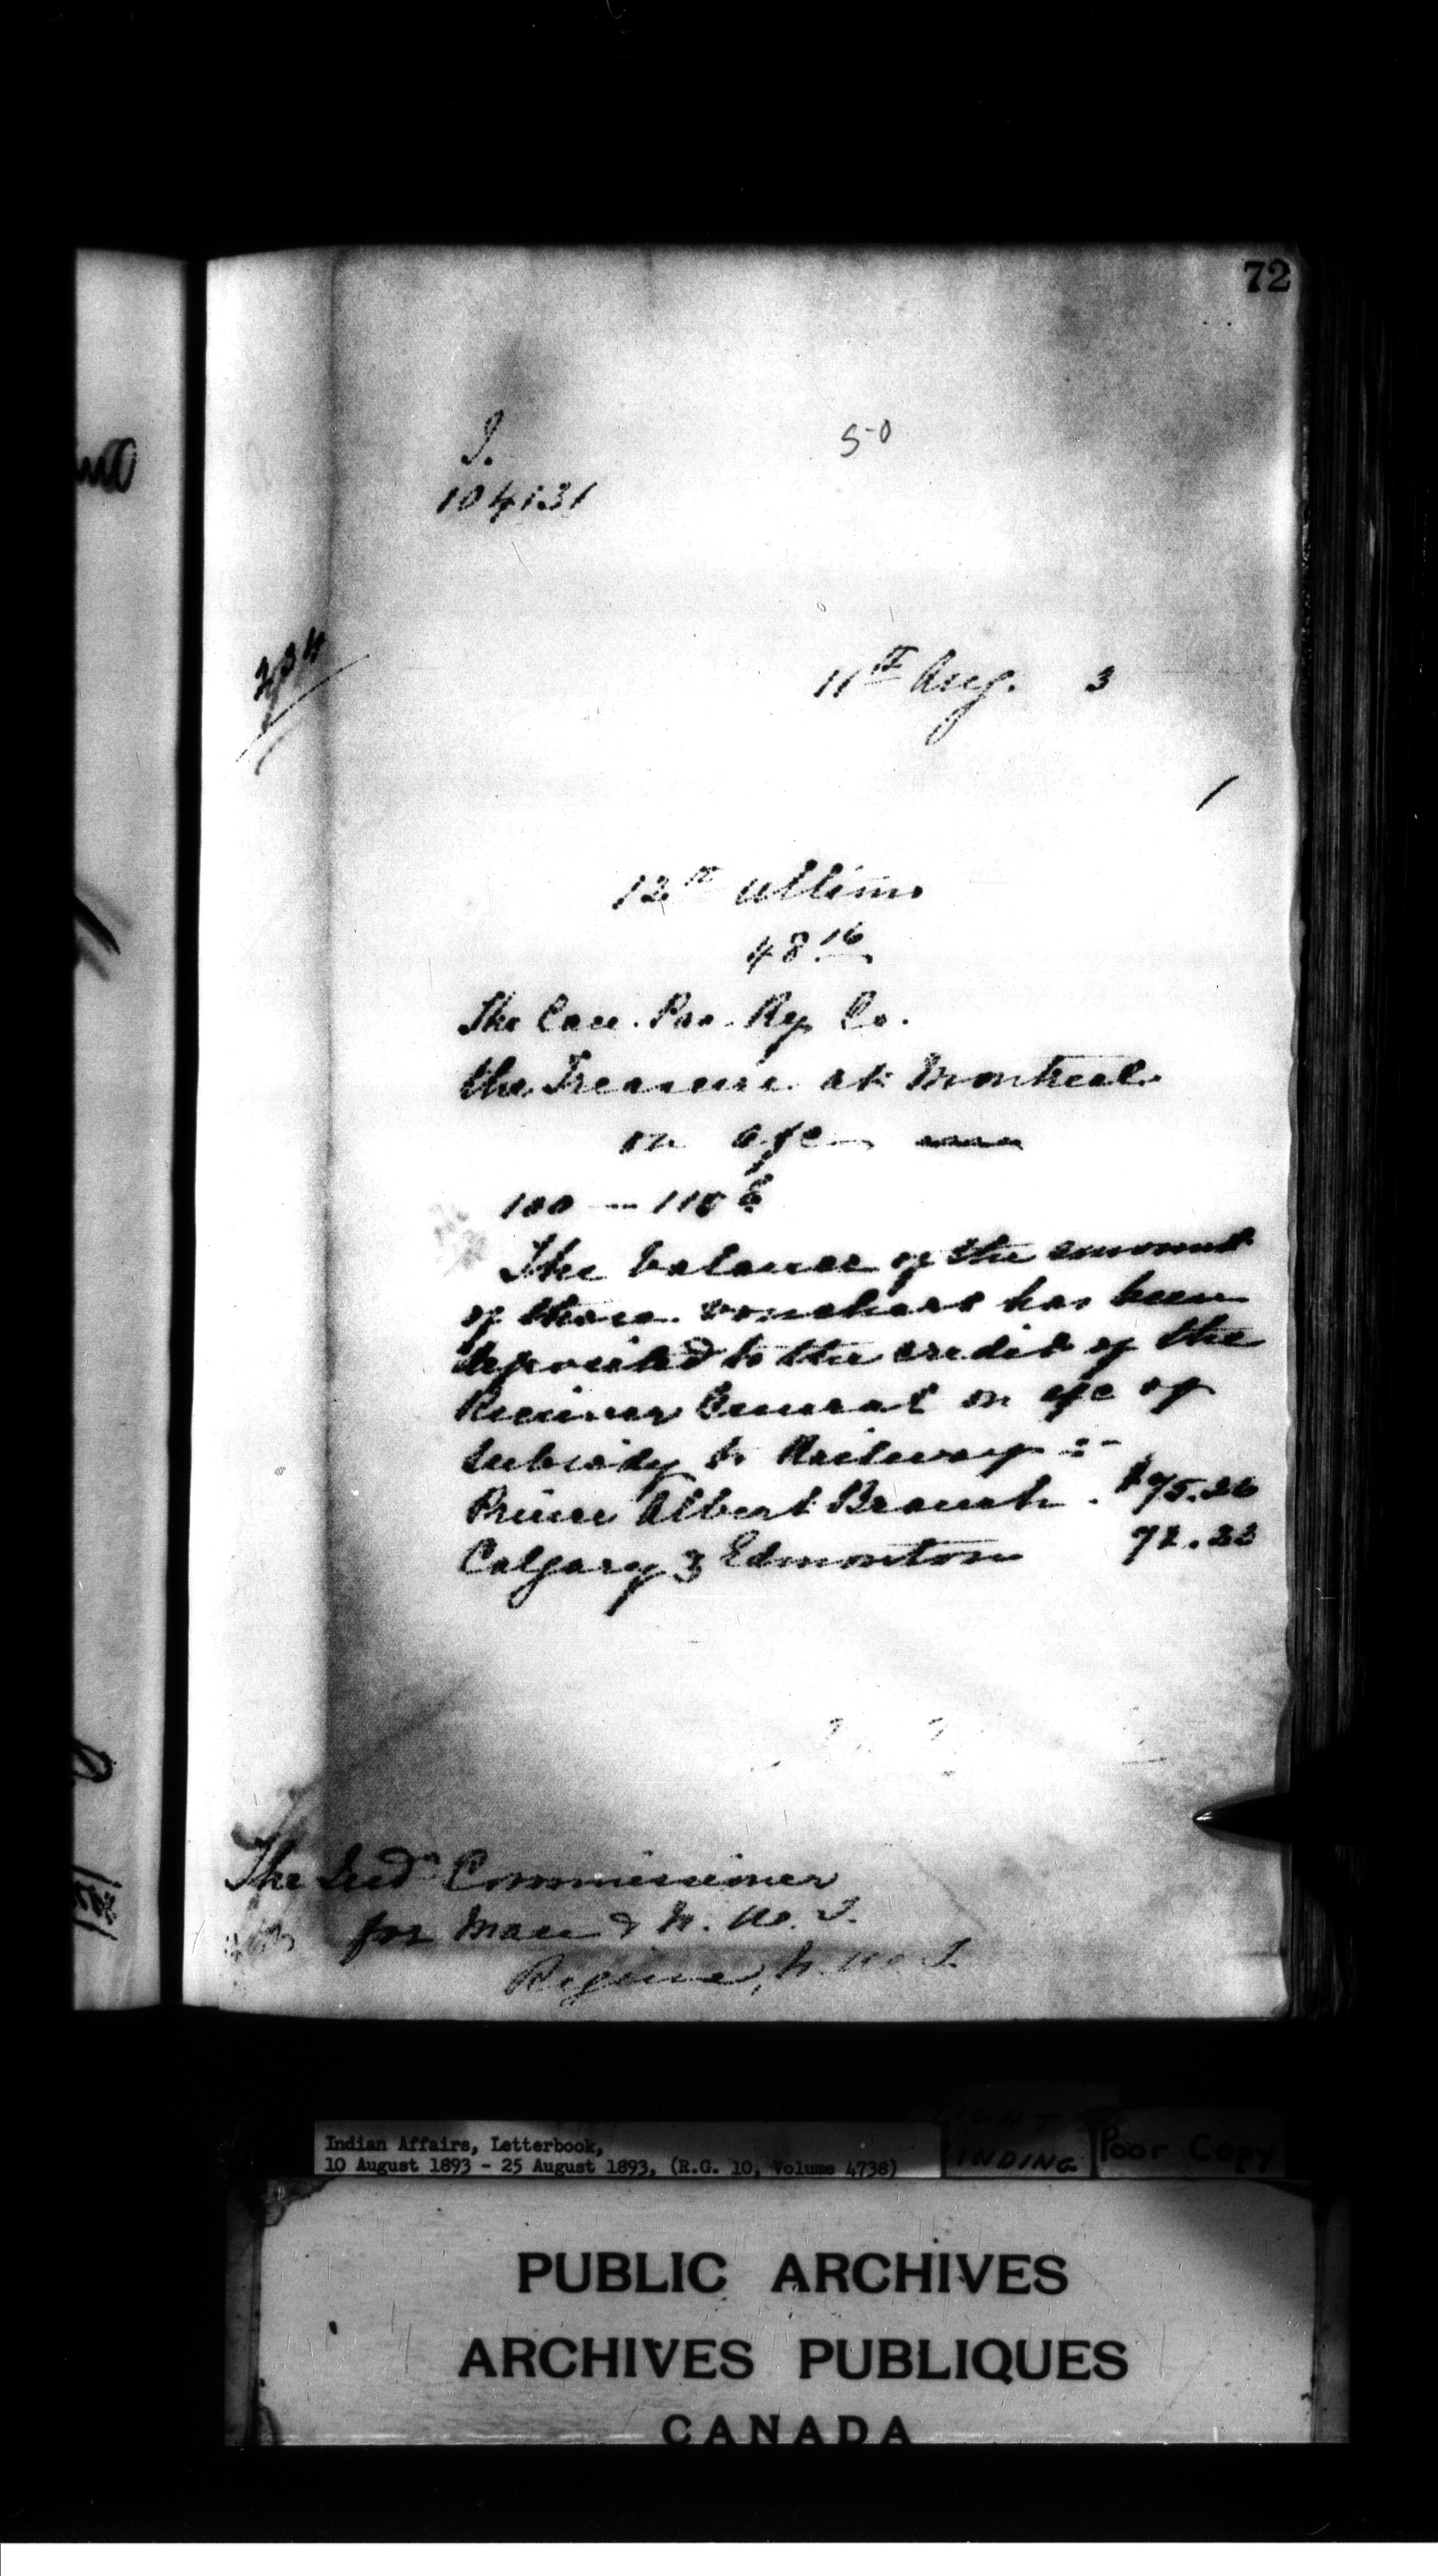 72
50
J.
104131
234
11th Aug. 3
12th ultimo
48.16
The Can. Pac. Ry. Co.
the Treasurer at Montreal
on a/c
100 --- 110
The balance of the amount
of these vouchers has been
deposited to the credit of the
Receiver General on a/c of
Subsidy to Railway :-
Prince Albert Branch . $75.26
Calgary & Edmonton 72.22
The Indn Commissioner
for Man & N. W. T.
Regina, N. W. T.
Indian Affairs, Letterbook,
10 August 1893 - 25 August 1893, (R.G. 10, Volume 4738)
Poor Copy
PUBLIC ARCHIVES
ARCHIVES PUBLIQUES
CANADA